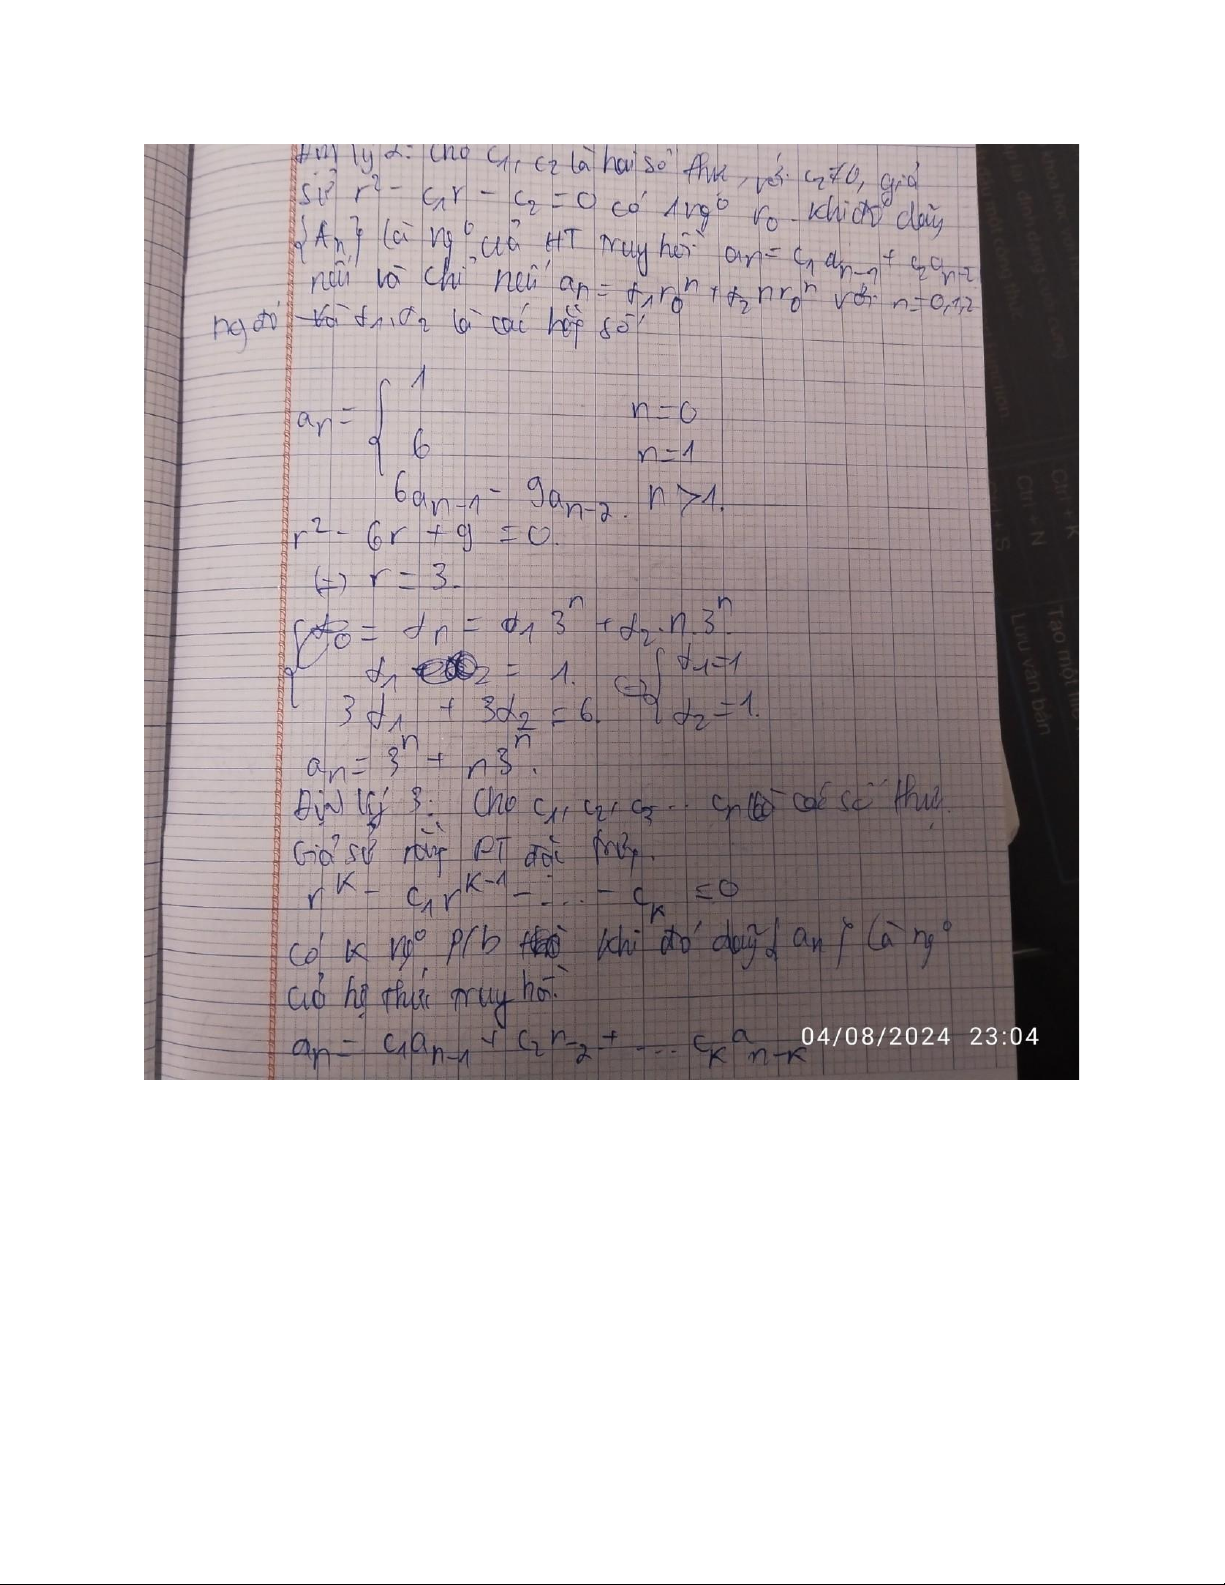 Định lý 2: Cho c₁, c₂ là hai số thực, với c₂≠0, giả
sử r² - c₁r - c₂ = 0 có 1 ngº r₀ khi đó dãy
{An} là ngº của HT truy hồi an = c₁an-1 + c₂an-2
nếu và chỉ nếu an = α₁r₀ⁿ + α₂nr₀ⁿ với n=0,1,2
α₁, α₂ là các số
an = { 1 n=0
6 n=1
6an-1 - 9an-2. n>1.
r² - 6r + 9 = 0.
(=) r = 3.
= αn = α₁3ⁿ + α₂.n.3ⁿ
α₁ = 1. (=) { α₁=1
3α₁ + 3α₂ = 6. α₂=1.
an = 3ⁿ + n3ⁿ.
Định lý 3: Cho c₁, c₂, c₃... cn là các số thực.
Giả sử rằng PT đặc trưng.
rᴷ - c₁rᴷ⁻¹ - ... - cK = 0
Có K ngº P/b khi đó dãy { an } là ngº
của hệ thức truy hồi.
an = c₁an-1 + c₂n-2 + ... cK an-K
04/08/2024 23:04
Ctrl + K
Ctrl + N
Ctrl + S
Tạo một
Lưu văn bản